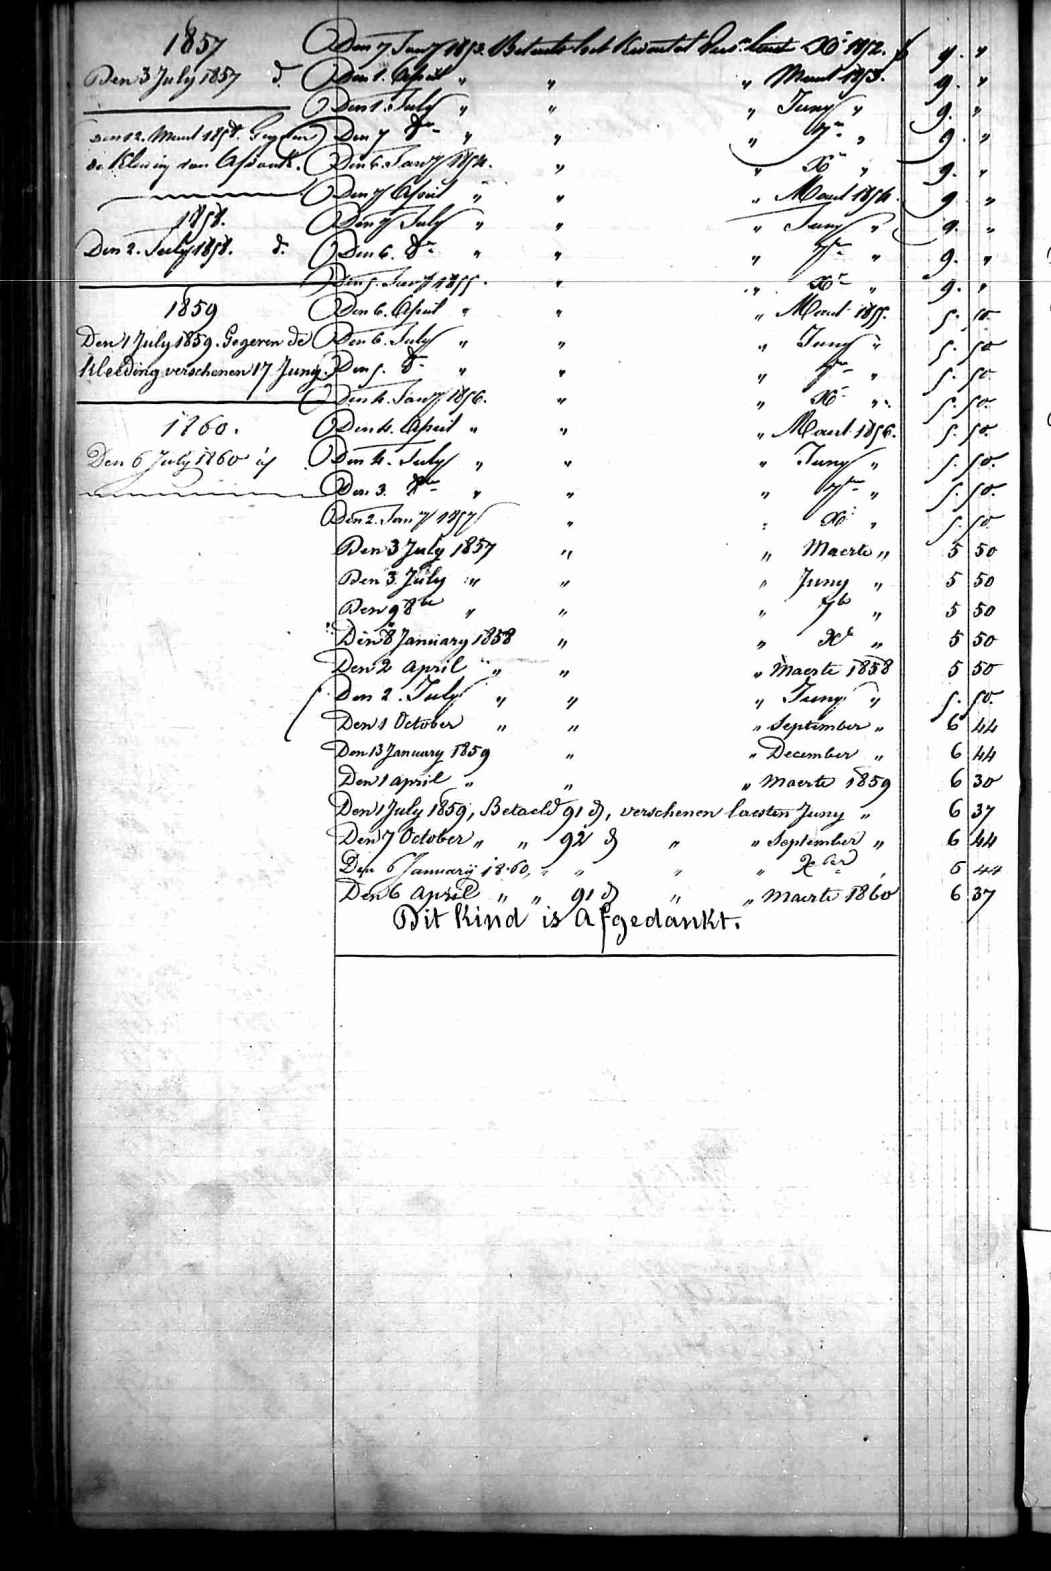 1857
Den 3 July 1857 d.
den 12. Maart 1858. Gegeven
de kleding van
1858.
Den 2. July 1858. d.
1859
Den 1 July 1859. Gegeven de
kleeding verschenen 17 Juny.
1860.
Den 6 July 1860
Den 7 Jany 1853. Betaeld het kwartael X.r 1852. f 9. "
Den 1. April " " " Maart 1853. 9. "
Den 1. July " " " Juny " 9. "
Den 7 8.re " " " 7.re " 9. "
Den 6. Jany 1854. " " X.r " 9. "
Den 7 April " " " Maart 1854. 9. "
Den 7 July " " " Juny " 9. "
Den 6. 8.re " " " 7.re " 9. "
Den 5. Jany 1855. " " X.r " 9. "
Den 6. April " " " Maart 1855. 5. 50.
Den 6. July " " " Juny " 5. 50
Den 5. 8.re " " " 7.re " 5. 50
Den 4. Jany 1856. " " X.r " 5. 50.
Den 4. April " " " Maart 1856. 5. 50.
Den 4. July " " " Juny " 5. 50.
Den 3. 8.re " " " 7.re " 5. 50.
Den 2. Jany 1857 " " X.r " 5. 50.
Den 3 July 1857 " " Maerte " 5 50
Den 3 July " " " Juny " 5 50
Den 9 8be " " " 7be " 5 50
Den 8 January 1858 " " Xr " 5 50
Den 2 April " " " Maerte 1858 5 50
Den 2. July " " " Juny " 5. 50.
Den 1 October " " " September " 6 44
Den 13 January 1859 " " December " 6 44
Den 1 april " " " Maerte 1859 6 30
Den 1 July 1859, Betaeld 91 d, verschenen laesten Juny " 6 37
Den 7 October " " 92 d " " September " 6 44
Den 6 Januarij 1860, " " " " Xber " 6 44
Den 6 April " " 91 d " " Maerte 1860 6 37
Dit kind is afgedankt.